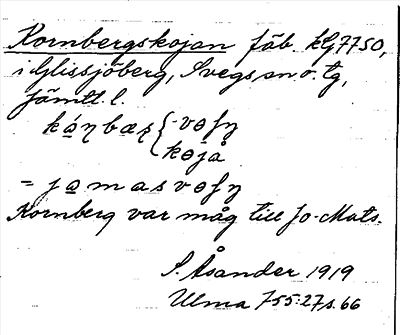 Kornbergskojan fäb. kG7750,
i Glissjöberg, Svegs sn o. tg,
Jämtl. l.
káƞbæʂ { vɵʃƞ
kɵjå
= jɑmasvɵʃƞ
Kornberg var måg till Jo-Mats.
S. Åsander 1919
Ulma 755:27 s. 66